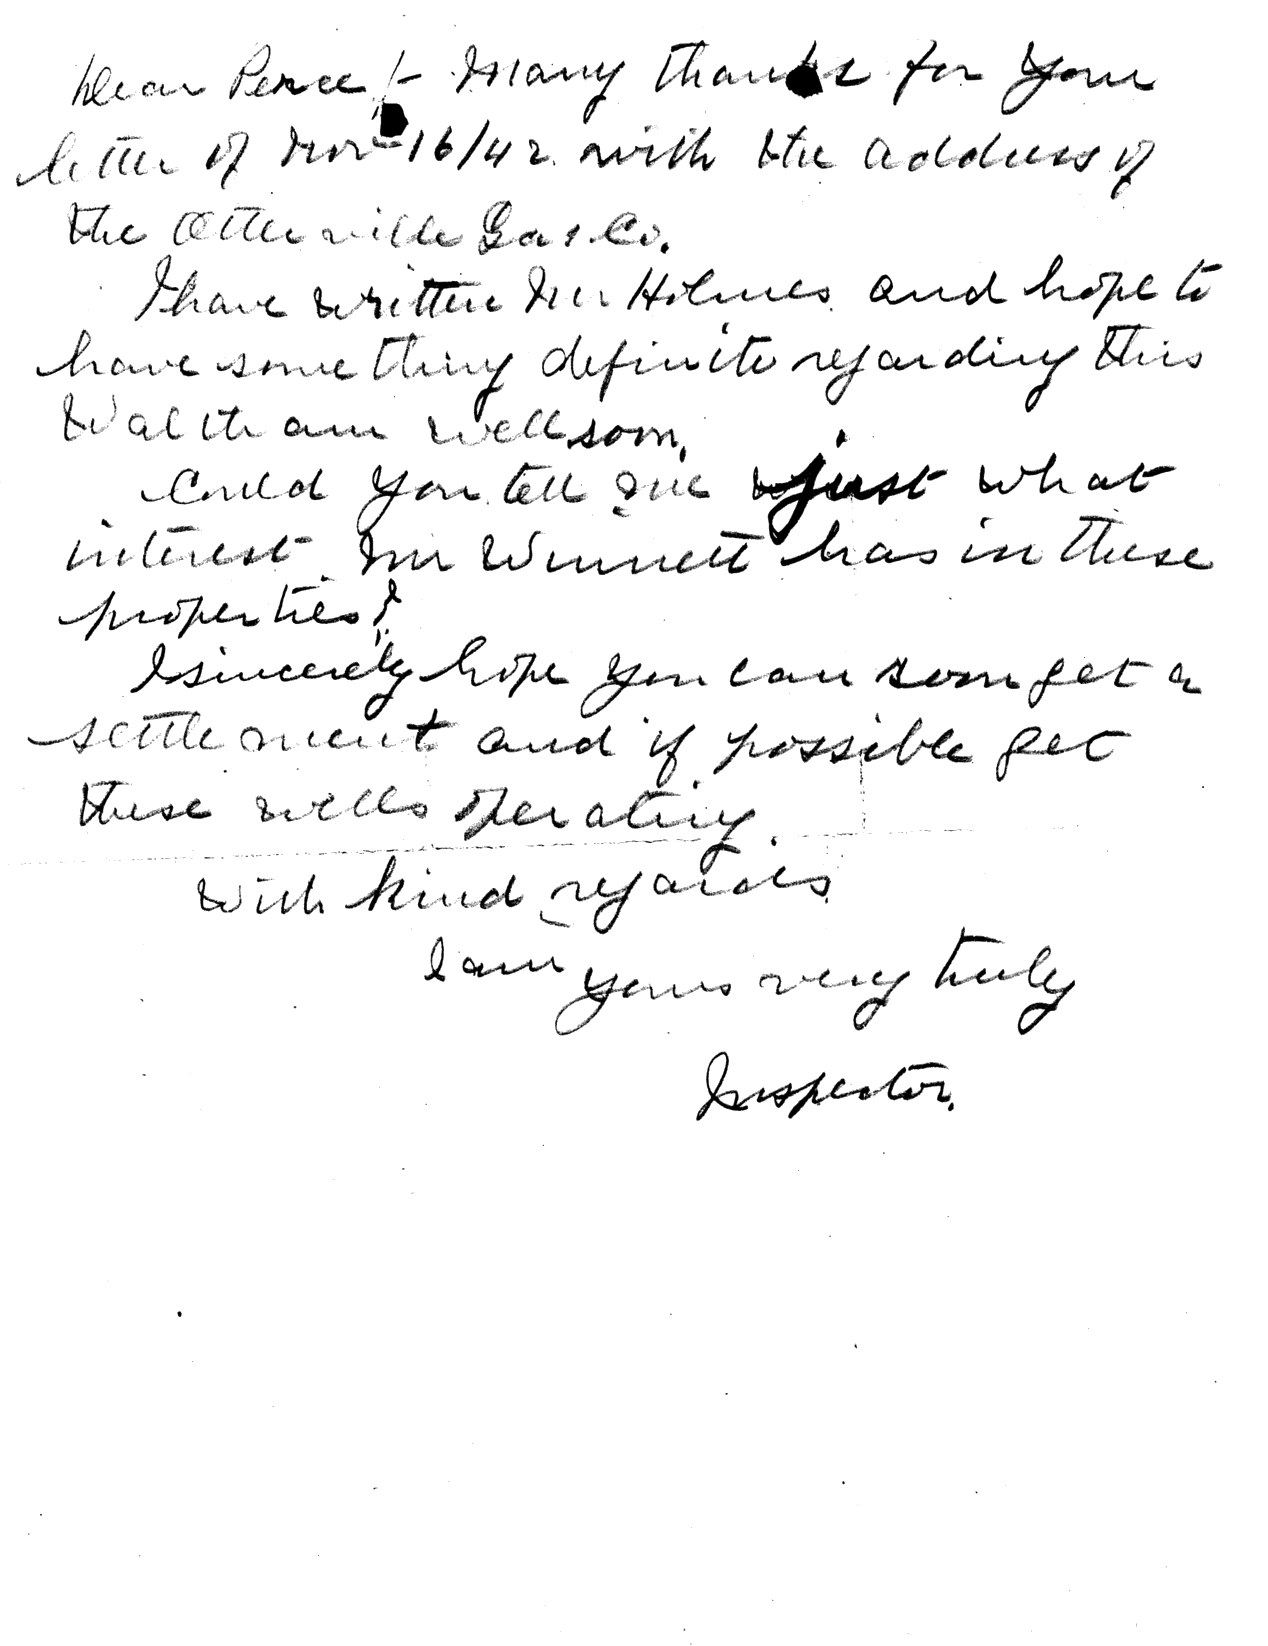 Dear Perce !- Many thanks for your
letter of Nov 16/42 with the address of
the Otterville Gas Co.
I have written Mr Holmes and hope to
have something definite regarding this
Waltham well soon.
Could you tell me just what
interest Mr Winnett has in these
properties?
I sincerely hope you can soon get a
settlement and if possible get
these wells operating.
With kind regards
I am yours very truly
Inspector.